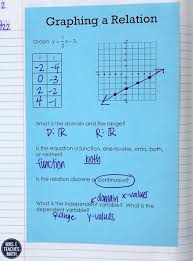 2
Graphing a Relation
Graph y = 1/2 x - 3.
-2 -4
0 -3
2 -2
4 -1
What is the domain and the range?
D: ℝ R: ℝ
Is the equation a function, one-to-one, onto, both,
or neither?
function both
Is the relation discrete or continuous?
domain x-values
What is the independent variable? What is the
dependent variable?
Range y-values
MRS. E
TEACHES
MATH